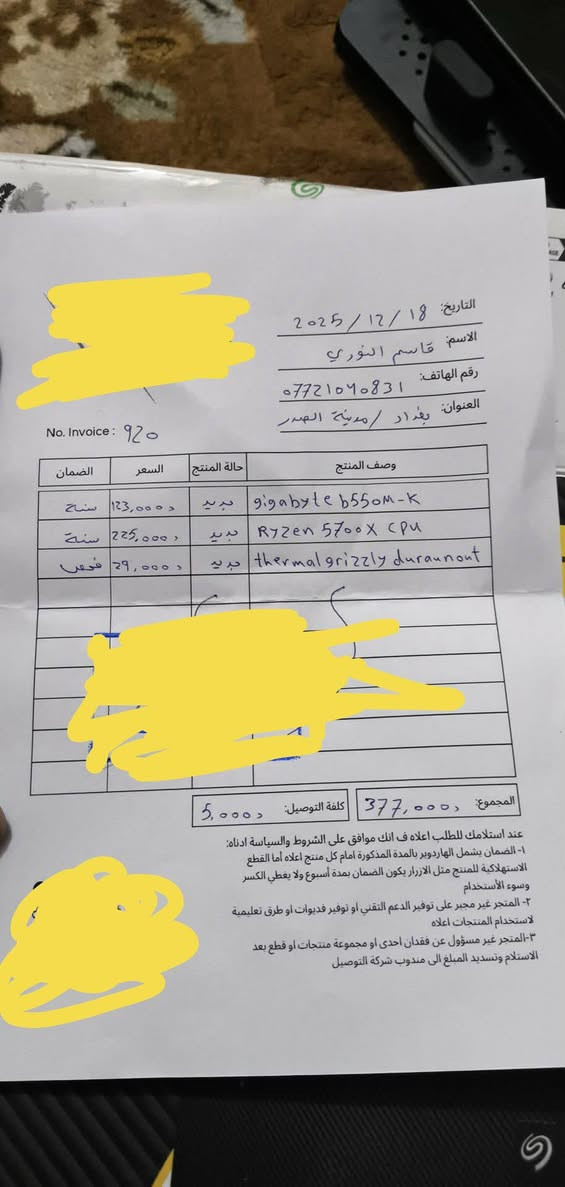 التاريخ: 2025/12/18
الاسم: قاسم النوري
رقم الهاتف: 07721040831
العنوان: بغداد / مدينة الصدر
No. Invoice: 920
وصف المنتج حالة المنتج السعر الضمان
gigabyte b550M-K جديد 123,000 سنة
RyZen 5700X CPU جديد 225,000 سنة
thermalgrizzly duraunout جديد 29,000 فحص
المجموع: 377,000 كلفة التوصيل: 5,000
عند استلامك للطلب اعلاه ف انك موافق على الشروط والسياسة ادناه:
١- الضمان يشمل الهاردوير بالمدة المذكورة امام كل منتج اعلاه أما القطع
الاستهلاكية للمنتج مثل الازرار يكون الضمان بمدة أسبوع ولا يغطي الكسر
وسوء الأستخدام
٢- المتجر غير مجبر على توفير الدعم التقني او توفير فديوات او طرق تعليمية
لاستخدام المنتجات اعلاه
٣-المتجر غير مسؤول عن فقدان احدى او مجموعة منتجات او قطع بعد
الاستلام وتسديد المبلغ الى مندوب شركة التوصيل